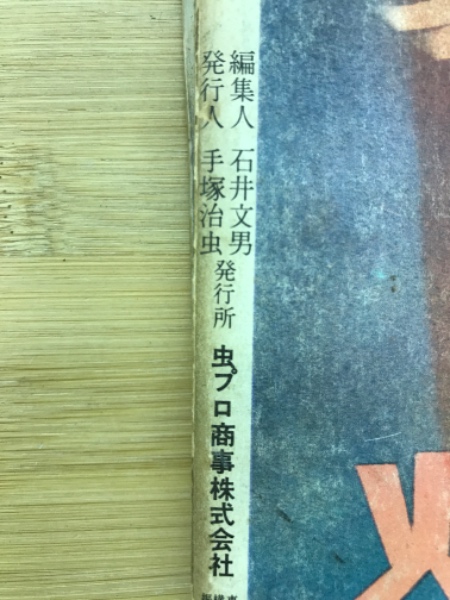 編集人 石井文男
発行人 手塚治虫
発行所
虫プロ商事株式会社